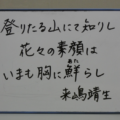 登りたる山にて知りし
花々の素顔は
いまも胸に鮮らし
あた
来嶋靖生